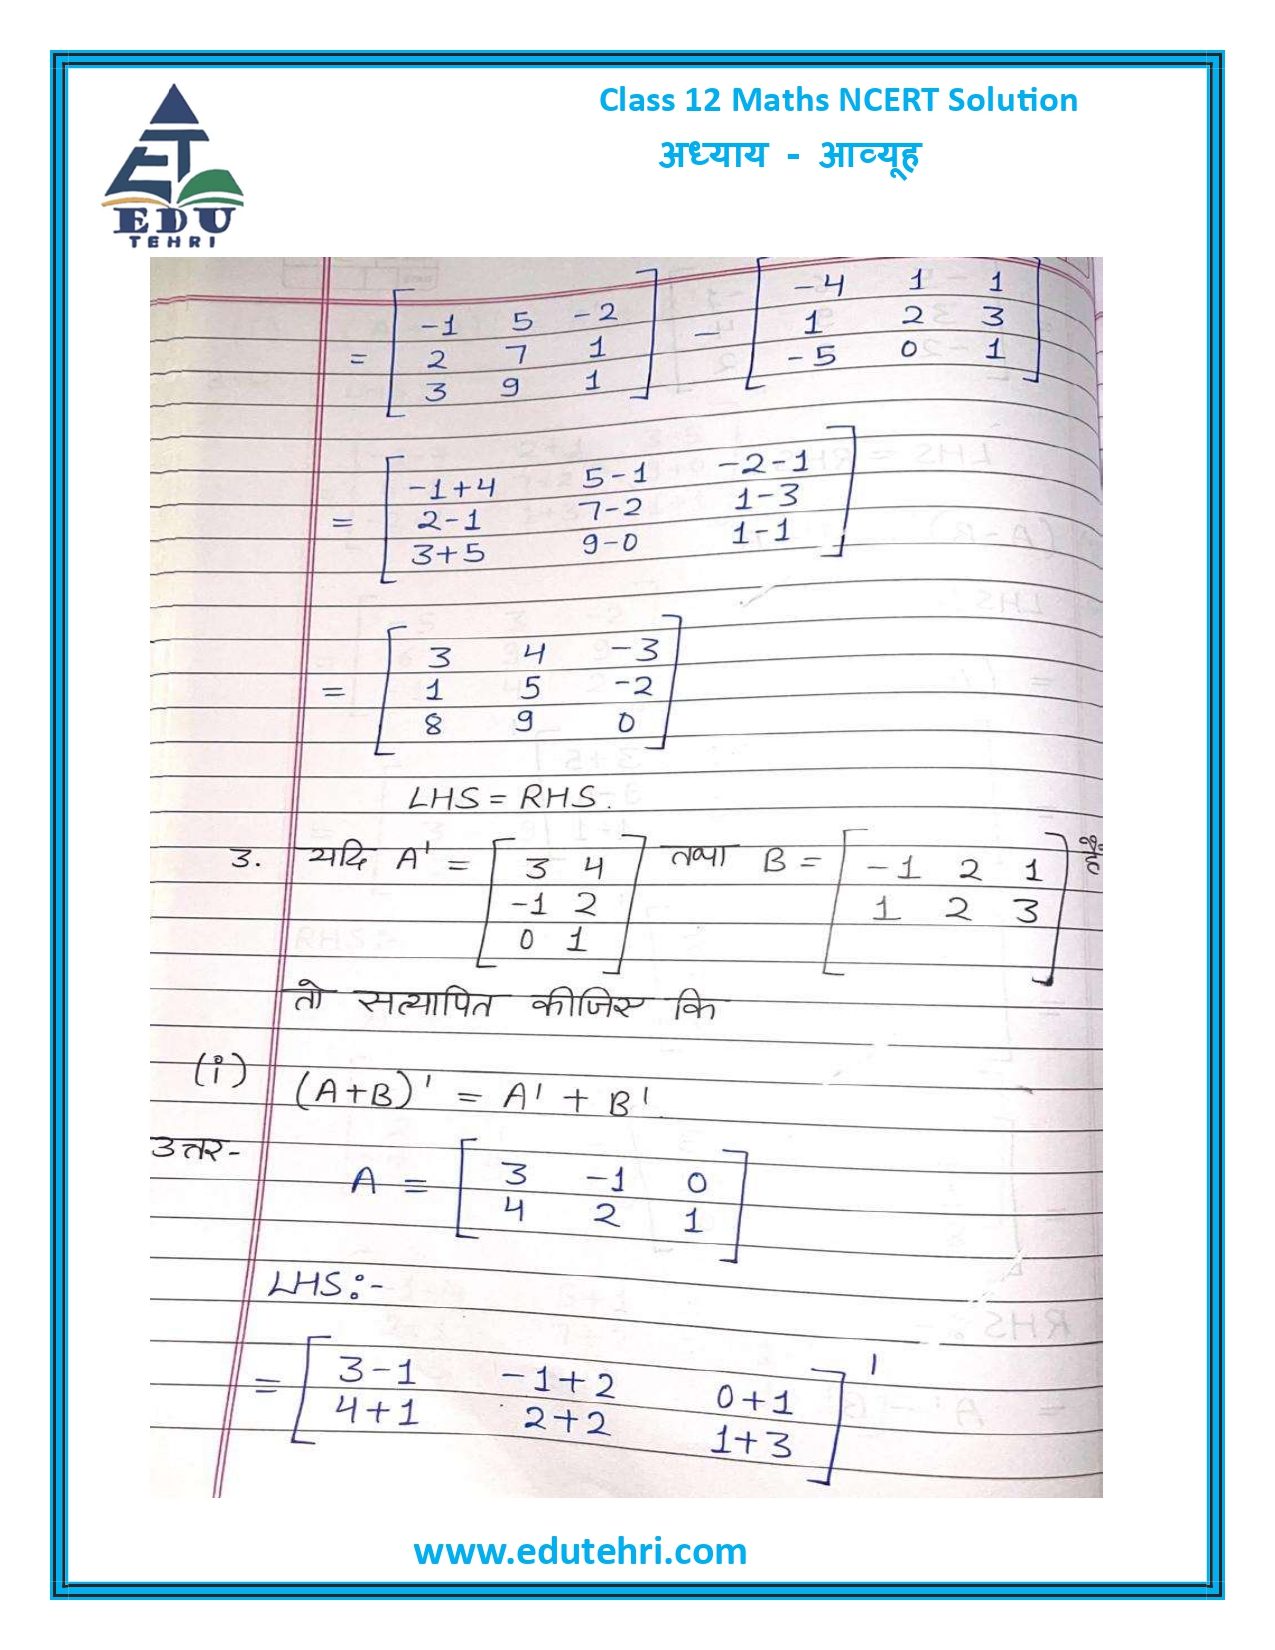 Class 12 Maths NCERT Solution
अध्याय - आव्यूह
EDU
TEHRI
= [ -1 5 -2 ] - [ -4 1 1 ]
2 7 1 1 2 3
3 9 1 -5 0 1
= [ -1+4 5-1 -2-1 ]
2-1 7-2 1-3
3+5 9-0 1-1
= [ 3 4 -3 ]
1 5 -2
8 9 0
LHS = RHS.
3. यदि A' = [ 3 4 ] तथा B = [ -1 2 1 ] हैं
-1 2 1 2 3
0 1
तो सत्यापित कीजिए कि
(i) (A+B)' = A' + B'.
उत्तर-
A = [ 3 -1 0 ]
4 2 1
LHS:-
= [ 3-1 -1+2 0+1 ]'
4+1 2+2 1+3
www.edutehri.com